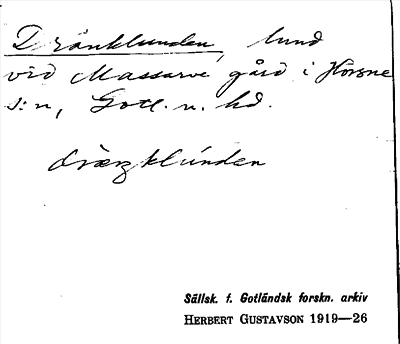 Dränklunden, lund
vid Masserve gård i Horsne
s:n, Gotl. n. hd.
Sällsk. f. Gotländsk forskn. arkiv
HERBERT GUSTAVSON 1919—26